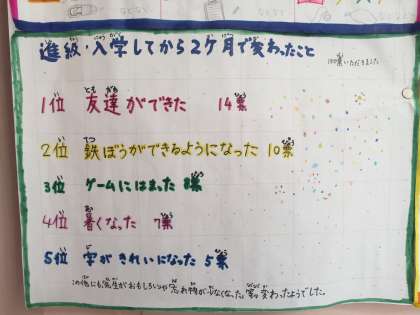 進級・入学してから2ケ月で変わったこと
1位 友達ができた 14票
2位 鉄ぼうができるようになった 10票
3位 ゲームにはまった 8票
4位 暑くなった 7票
5位 字がきれいになった 5票
この他にも先生がおもしろいや忘れ物が少なくなった。等変わったようでした。